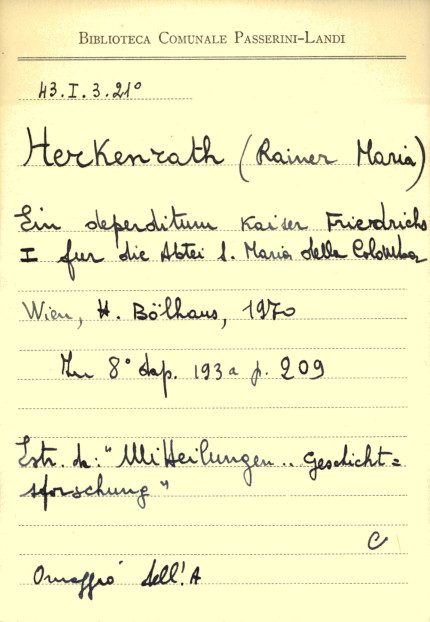 BIBLIOTECA COMUNALE PASSERINI-LANDI
43.I.3.21°
Herkenrath (Rainer Maria)
Ein deperditum Kaiser Friedrichs
I fur die Abtei S. Maria della Colomba
Wien, H. Bölhaus, 1970
In 8° dap. 193a p. 209
Estr. da: "Mitteilungen .. Geschicht=
sforschung"
C
Omaggio dell'A